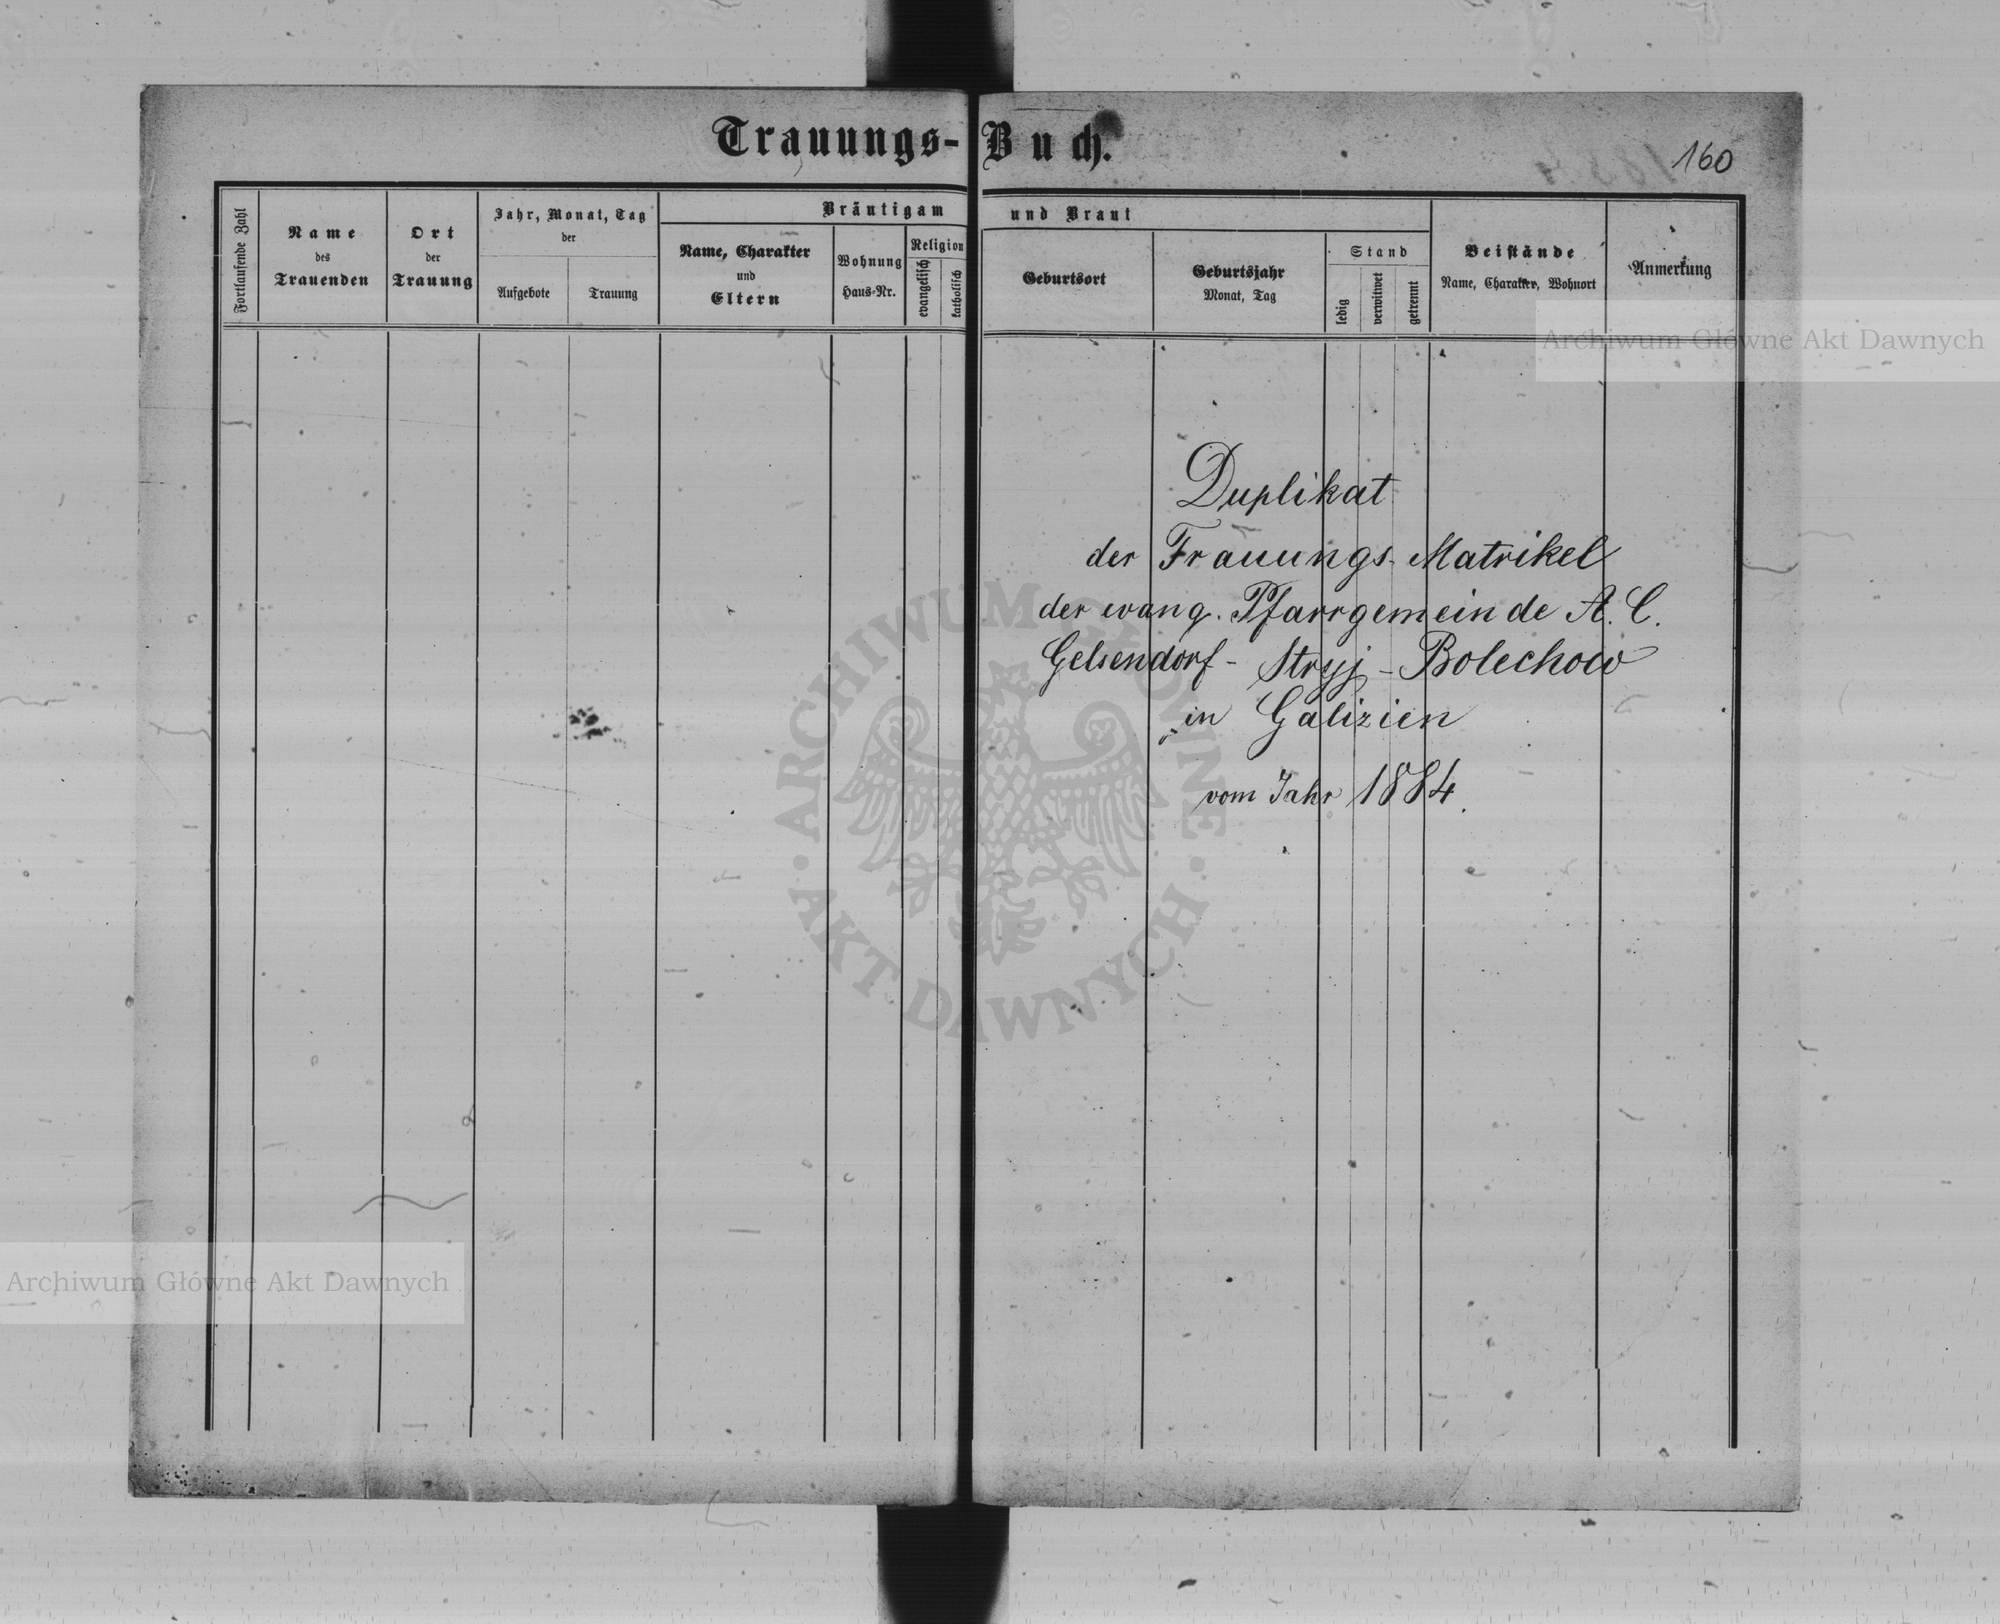 Trauungs-Buch.
160
Fortlaufende Zahl
Name
des
Trauenden
Ort
der
Trauung
Jahr, Monat, Tag
der
Aufgebote
Trauung
Bräutigam und Braut
Name, Charakter
und
Eltern
Wohnung
Haus-Nr.
Religion
evangelisch
katholisch
Geburtsort
Geburtsjahr
Monat, Tag
Stand
ledig
verwitwet
getrennt
Beistände
Name, Charakter, Wohnort
Anmerkung
Archiwum Główne Akt Dawnych
Duplikat
der Trauungs-Matrikel
der evang. Pfarrgemeinde A. C.
Gelsendorf - Stryj - Bolechow
in Galizien
vom Jahr 1884.
ARCHIWUM GŁÓWNE
AKT DAWNYCH
Archiwum Główne Akt Dawnych